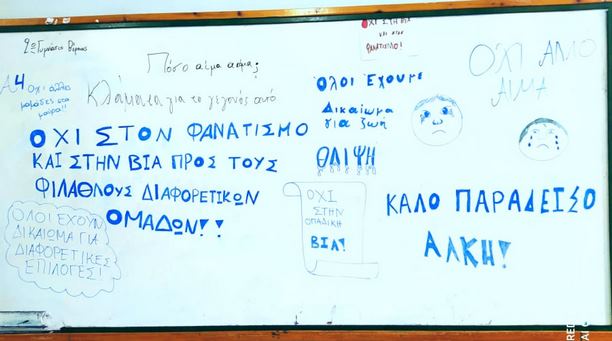 2ο Γυμνάσιο Θέρμης
Πόσο αίμα ακόμα;
Α4
Όχι άλλες
μαμάδες στα
μαύρα!!
Κλάματα για το γεγονός αυτό
ΟΧΙ ΣΤΟΝ ΦΑΝΑΤΙΣΜΟ
ΚΑΙ ΣΤΗΝ ΒΙΑ ΠΡΟΣ ΤΟΥΣ
ΦΙΛΑΘΛΟΥΣ ΔΙΑΦΟΡΕΤΙΚΩΝ
ΟΜΑΔΩΝ!!
ΟΛΟΙ ΕΧΟΥΝ
ΔΙΚΑΙΩΜΑ ΓΙΑ
ΔΙΑΦΟΡΕΤΙΚΕΣ
ΕΠΙΛΟΓΕΣ!
ΟΧΙ ΣΤΗ ΒΙΑ
ΚΑΙ ΣΤΟΝ
ΦΑΝΑΤΙΣΜΟ!
Όλοι Έχουμε
Δικαίωμα
για ζωή
ΘΛΙΨΗ
ΟΧΙ
ΣΤΗΝ
ΟΠΑΔΙΚΗ
ΒΙΑ!
ΟΧΙ ΑΛΛΟ
ΑΙΜΑ
ΚΑΛΟ ΠΑΡΑΔΕΙΣΟ
ΑΛΚΗ!